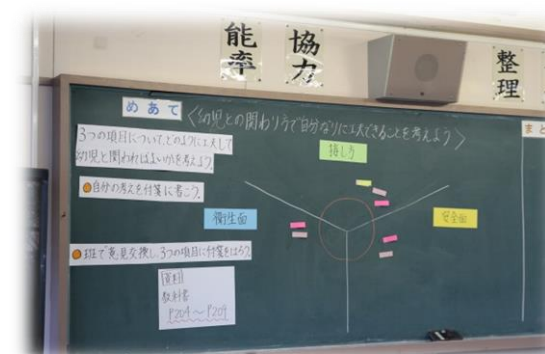 能率
協力
整理
めあて
〈幼児との関わり方で自分なりに工夫できることを考えよう〉
まと
3つの項目について、どのように工夫して
幼児と関わればよいかを考えよう。
●自分の考えを付箋に書こう。
●班で意見交換し、3つの項目に付箋をはろう。
接し方
衛生面
安全面
教科書
P204〜P209